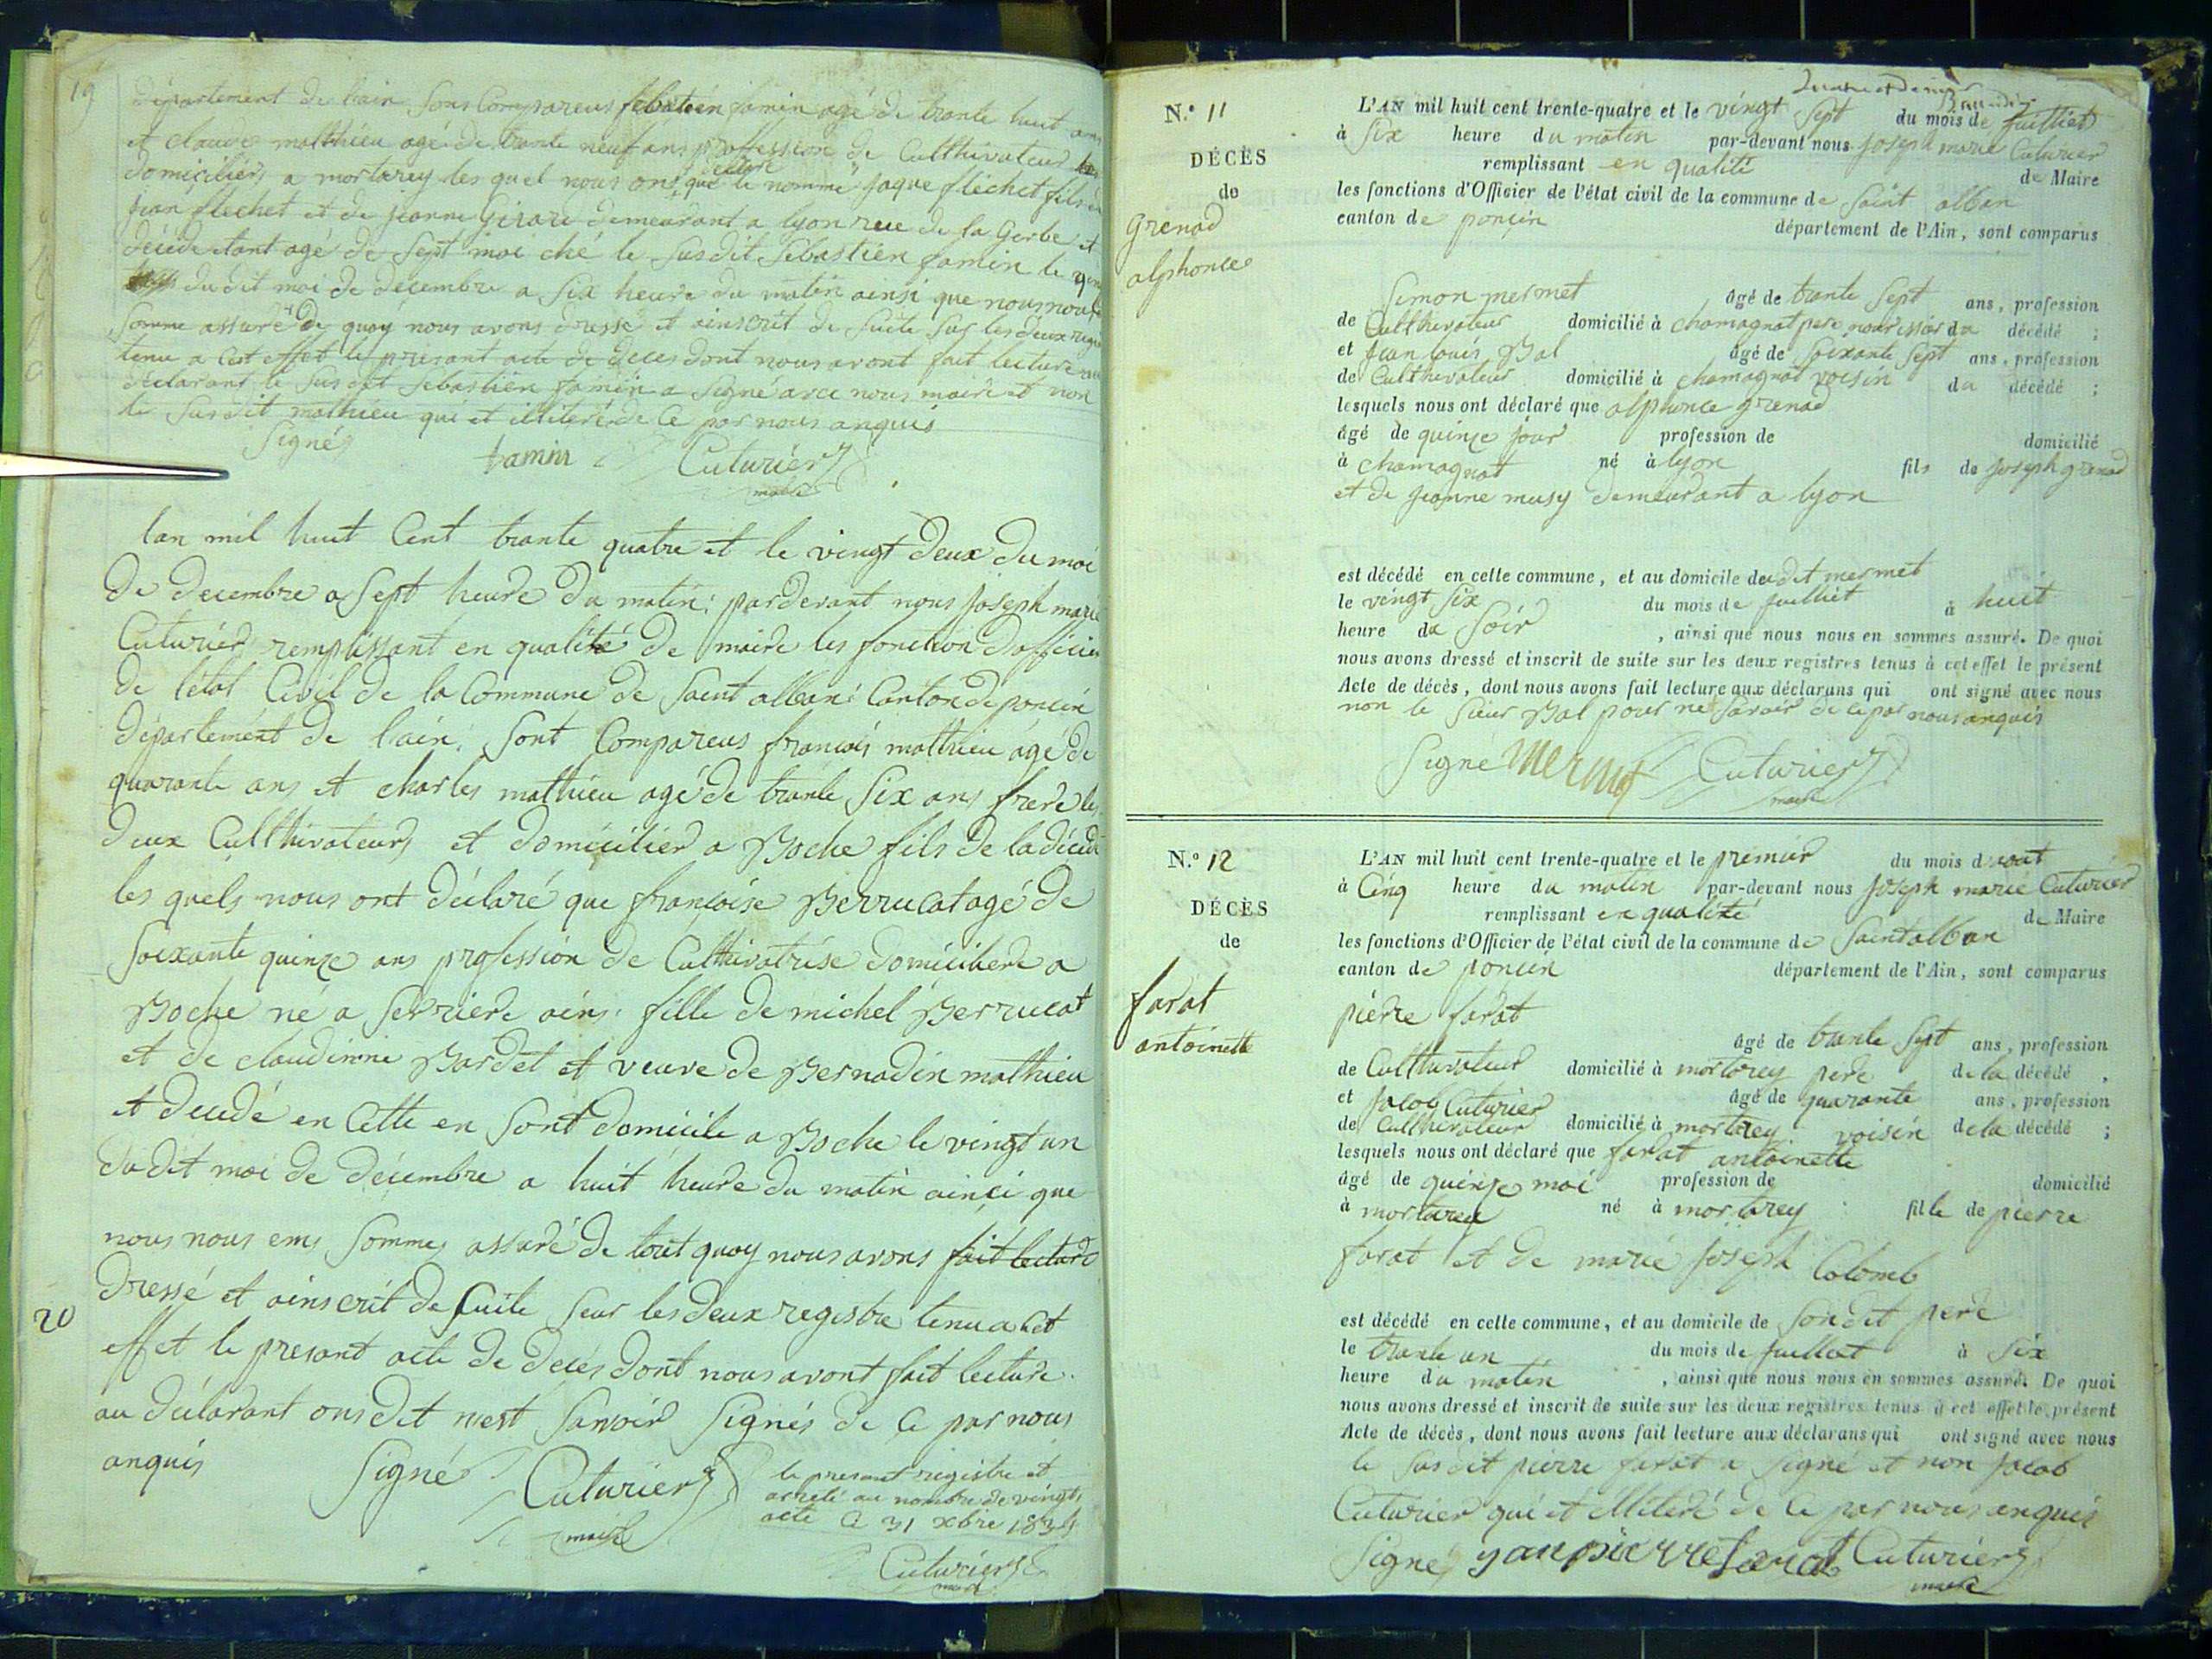 19
département de lain sons Compareus sebastien jamin agé de trante huit ans
et claude matthieu agé de trante neuf ans profession de Culthivateur
domicilier a mortarey les quel nous ont declare que le nommé jaque flechet fils de
jean flechet et de jeanne Girard demeurant a lyon rue de la Gerbe et
décédé etant agé de Sept moi ché le Susdit Sébastien jamin le
dudit moi de decembre a Six heure du matin ainsi que nous nous
Somme assuré De quoy nous avons dressé et ainscrit de Suite Sur les deux
tenu a cest effet le presant acte de deces dont nous avont fait lecture
déclarant le Susdit Sebastien jamin a Signé avec nous maire et non
le Susdit mathieu qui et illiteré de Ce par nous anquis
Signés jamin Cuturier
maire
lan mil huit Cent trante quatre et le vingt deux du moi
de decembre a Sept heure du matin: pardevant nous joseph marie
Cuturier remplissant en qualité de maire les fonction dofficier
de létat Civil de la Commune de Saint alban: Canton de poncin
département de lain: Sont Compareus francois mathieu agé de
quarante ans et charles mathieu agé de trante Six ans frere les
deux Culthivateurs et domicilier a Boche fils de la décédé
les quels nous ont déclaré que françoise Berrucat agé de
Soixante quinze ans profession de Culthivatrise domiciliere a
Boche né a Serriere ains: fille de michel Berrucat
et de claudinne Bardet et veuve de Bernadin mathieu
et decedé en Cette en Sont domicile a Boche le vingt un
dudit moi de décembre a huit heure du matin ainçi que
nous nous ems Sommes assuré de tout quoy nous avons fait lecture
dressé et ainscrit de Suite Seur les deux registre tenu a Cet
20
effet le presant acte de decés dont nous avont fait lecture.
au déclarant ons dit nest Savoir Signés de Ce par nous
anquis Signé Cuturier
maire
le presant registre et
arreté au nombre de vingts
acte Ce 31 xbre 1834
Cuturier
maire
N.o 11
DÉCÈS
de
Grenad
alphonce
L'AN mil huit cent trente-quatre et le vingt Sept du mois de juilliet
à Six heure du matin par-devant nous joseph marie Cuturier
remplissant en qualité de Maire
les fonctions d'Officier de l'état civil de la commune de Saint alban
canton de poncin département de l'Ain, sont comparus
Simon mermet âgé de trante Sept ans, profession
de Culthivateur domicilié à chamagnat pere nourissier du décédé ;
et jean louis Bal âgé de Soixante Sept ans, profession
de Culthivateur domicilié à chamagnat voisin du décédé ;
lesquels nous ont déclaré que alphonce grenad
âgé de quinze jour profession de domicilié
à chamagnat né à lyon fils de joseph grenad
et de jeanne musy demeurant a lyon
est décédé en cette commune, et au domicile du dit mermet
le vingt Six du mois de juilliet à huit
heure du Soir , ainsi que nous nous en sommes assuré. De quoi
nous avons dressé et inscrit de suite sur les deux registres tenus à cet effet le présent
Acte de décès, dont nous avons fait lecture aux déclarans qui ont signé avec nous
non le Sieur Bal pour ne Savoir de ce par nous anquis
Signe Mermet Cuturier
maire
N.o 12
DÉCÈS
de
farat
antoinette
L'AN mil huit cent trente-quatre et le premier du mois d'aout
à Cinq heure du matin par-devant nous joseph marie Cuturier
remplissant en qualité de Maire
les fonctions d'Officier de l'état civil de la commune de Saint alban
canton de poncin département de l'Ain, sont comparus
pierre farat
âgé de trante Sept ans, profession
de Culthivateur domicilié à mortarey pere de la décédé ,
et jacob Cuturier âgé de quarante ans, profession
de Culthivateur domicilié à mortarey voisin de la décédé ;
lesquels nous ont déclaré que farat antoinette
âgé de quinze moi profession de domicilié
à mortarey né à mortarey fille de pierre
farat et de marie joseph Colomb
est décédé en cette commune, et au domicile de Son dit pere
le trante un du mois de juilliet à Six
heure du matin , ainsi que nous nous en sommes assuré. De quoi
nous avons dressé et inscrit de suite sur les deux registres tenus à cet effet le présent
Acte de décès, dont nous avons fait lecture aux déclarans qui ont signé avec nous
le Susdit pierre farat a Signé et non jacob
Cuturier qui et illiteré de Ce par nous anquis
Signé jan pierre farat Cuturier
maire